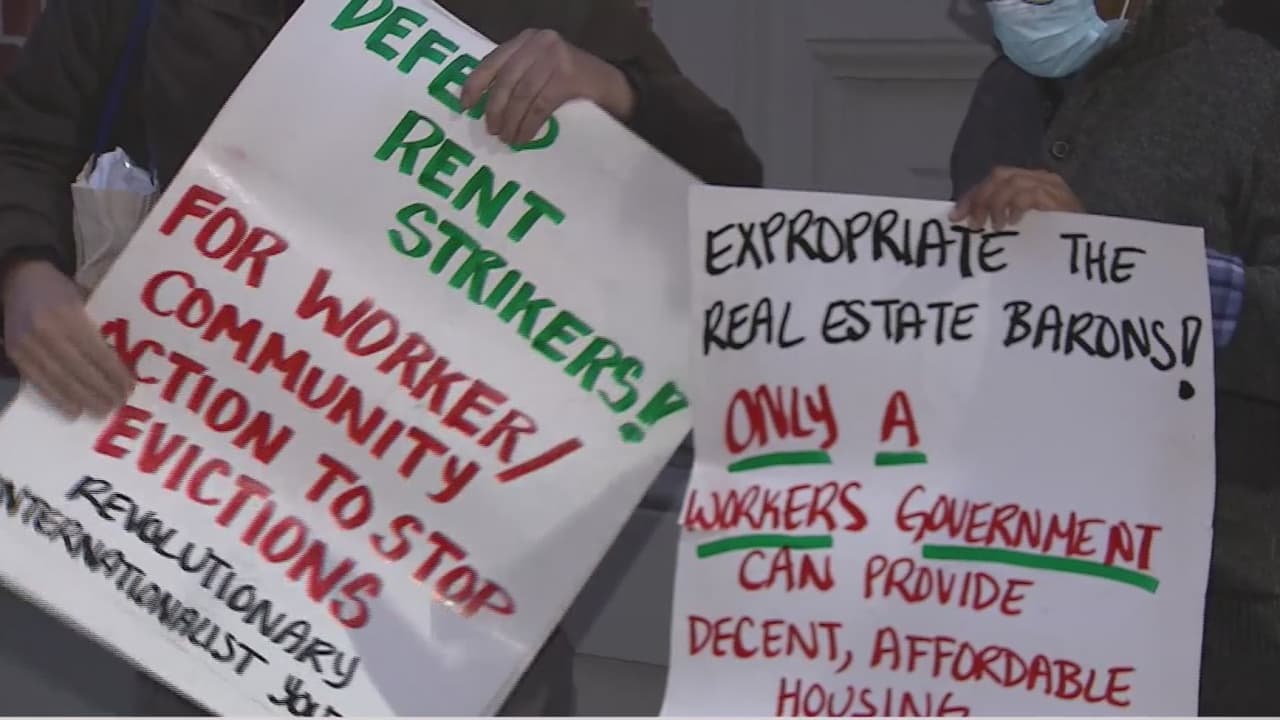 DEFEND
RENT
STRIKERS!
FOR WORKER/
COMMUNITY
ACTION TO STOP
EVICTIONS
REVOLUTIONARY
INTERNATIONALIST
EXPROPRIATE THE
REAL ESTATE BARONS!
ONLY A
WORKERS GOVERNMENT
CAN PROVIDE
DECENT, AFFORDABLE
HOUSING